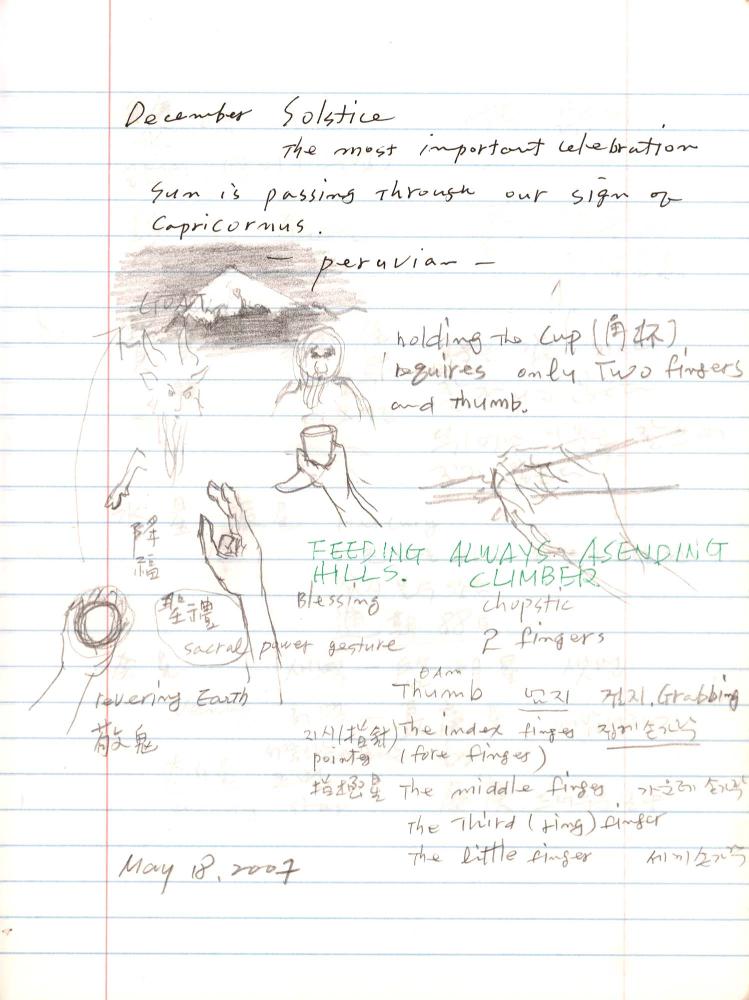 December Solstice
The most important celebration
Sun is passing through our sign of
Capricornus.
— peruvian —
GOAT
holding the cup (角杯)
requires only Two fingers
and thumb.
降
福
FEEDING ALWAYS ASENDING
HILLS. CLIMBER
Blessing chopstic
聖禮
sacral power gesture 2 fingers
revering Earth Thumb 검지. Grabbing
The index finger 집게손가락
pointer (fore finger)
The middle finger 가운데 손가락
The Third (ring) finger
The little finger 세끼손가락
May 18, 2007